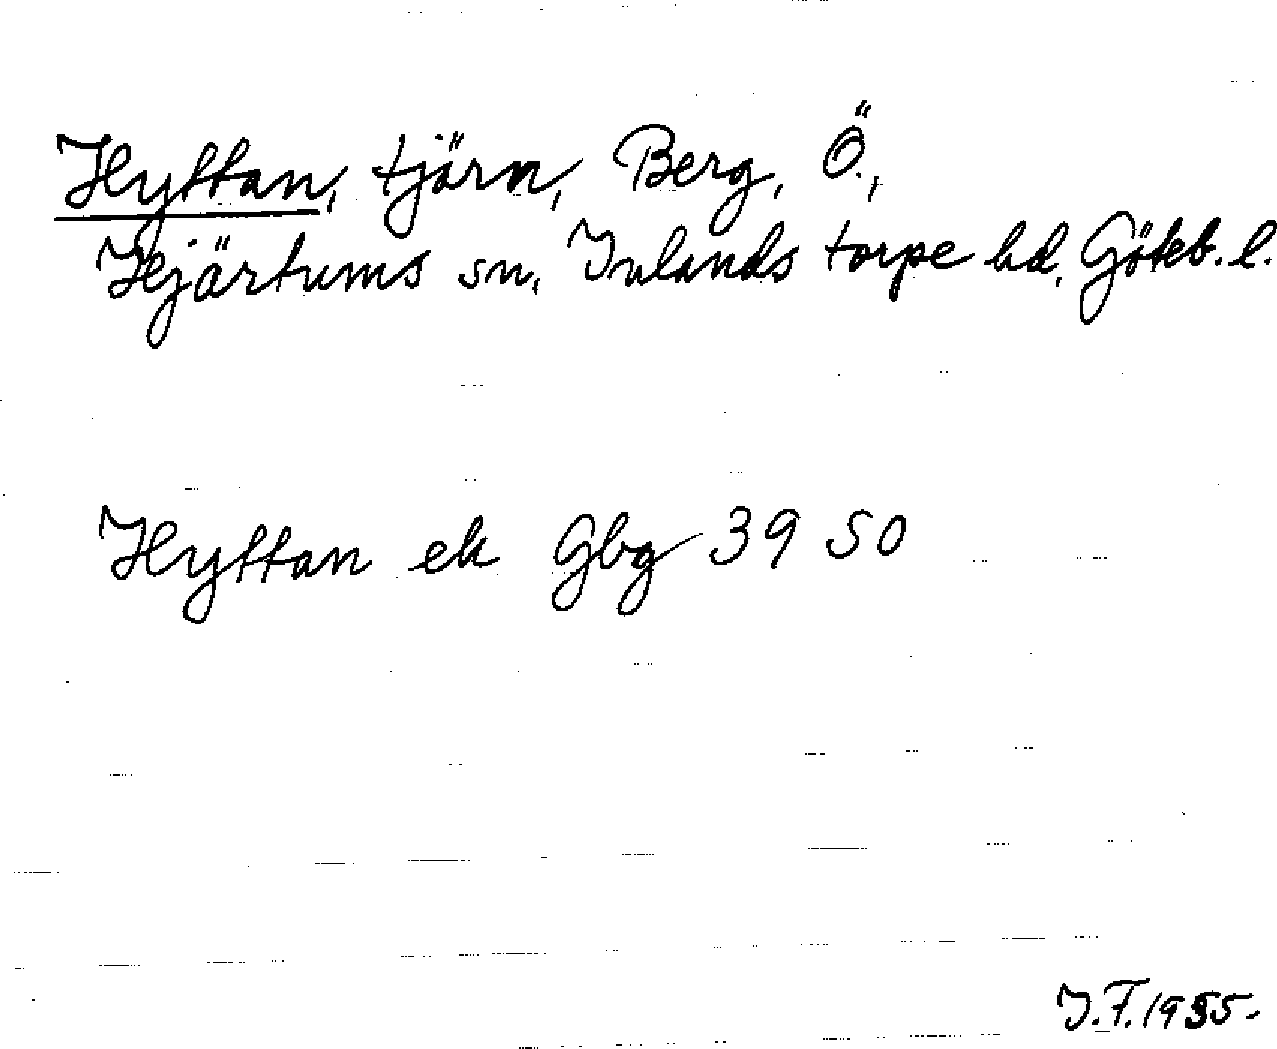 Hyttan, tjärn, Berg, Ö.,
Hjärtums sn, Inlands torpe hd, Göteb. l.
Hyttan ek Gbg 39 50
J.F. 1955.